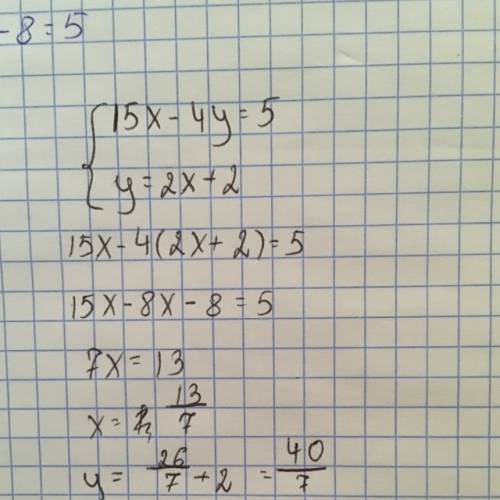 - 8 = 5
{ 15x - 4y = 5
y = 2x + 2
15x - 4(2x + 2) = 5
15x - 8x - 8 = 5
7x = 13
x = 13/7
y = 26/7 + 2 = 40/7